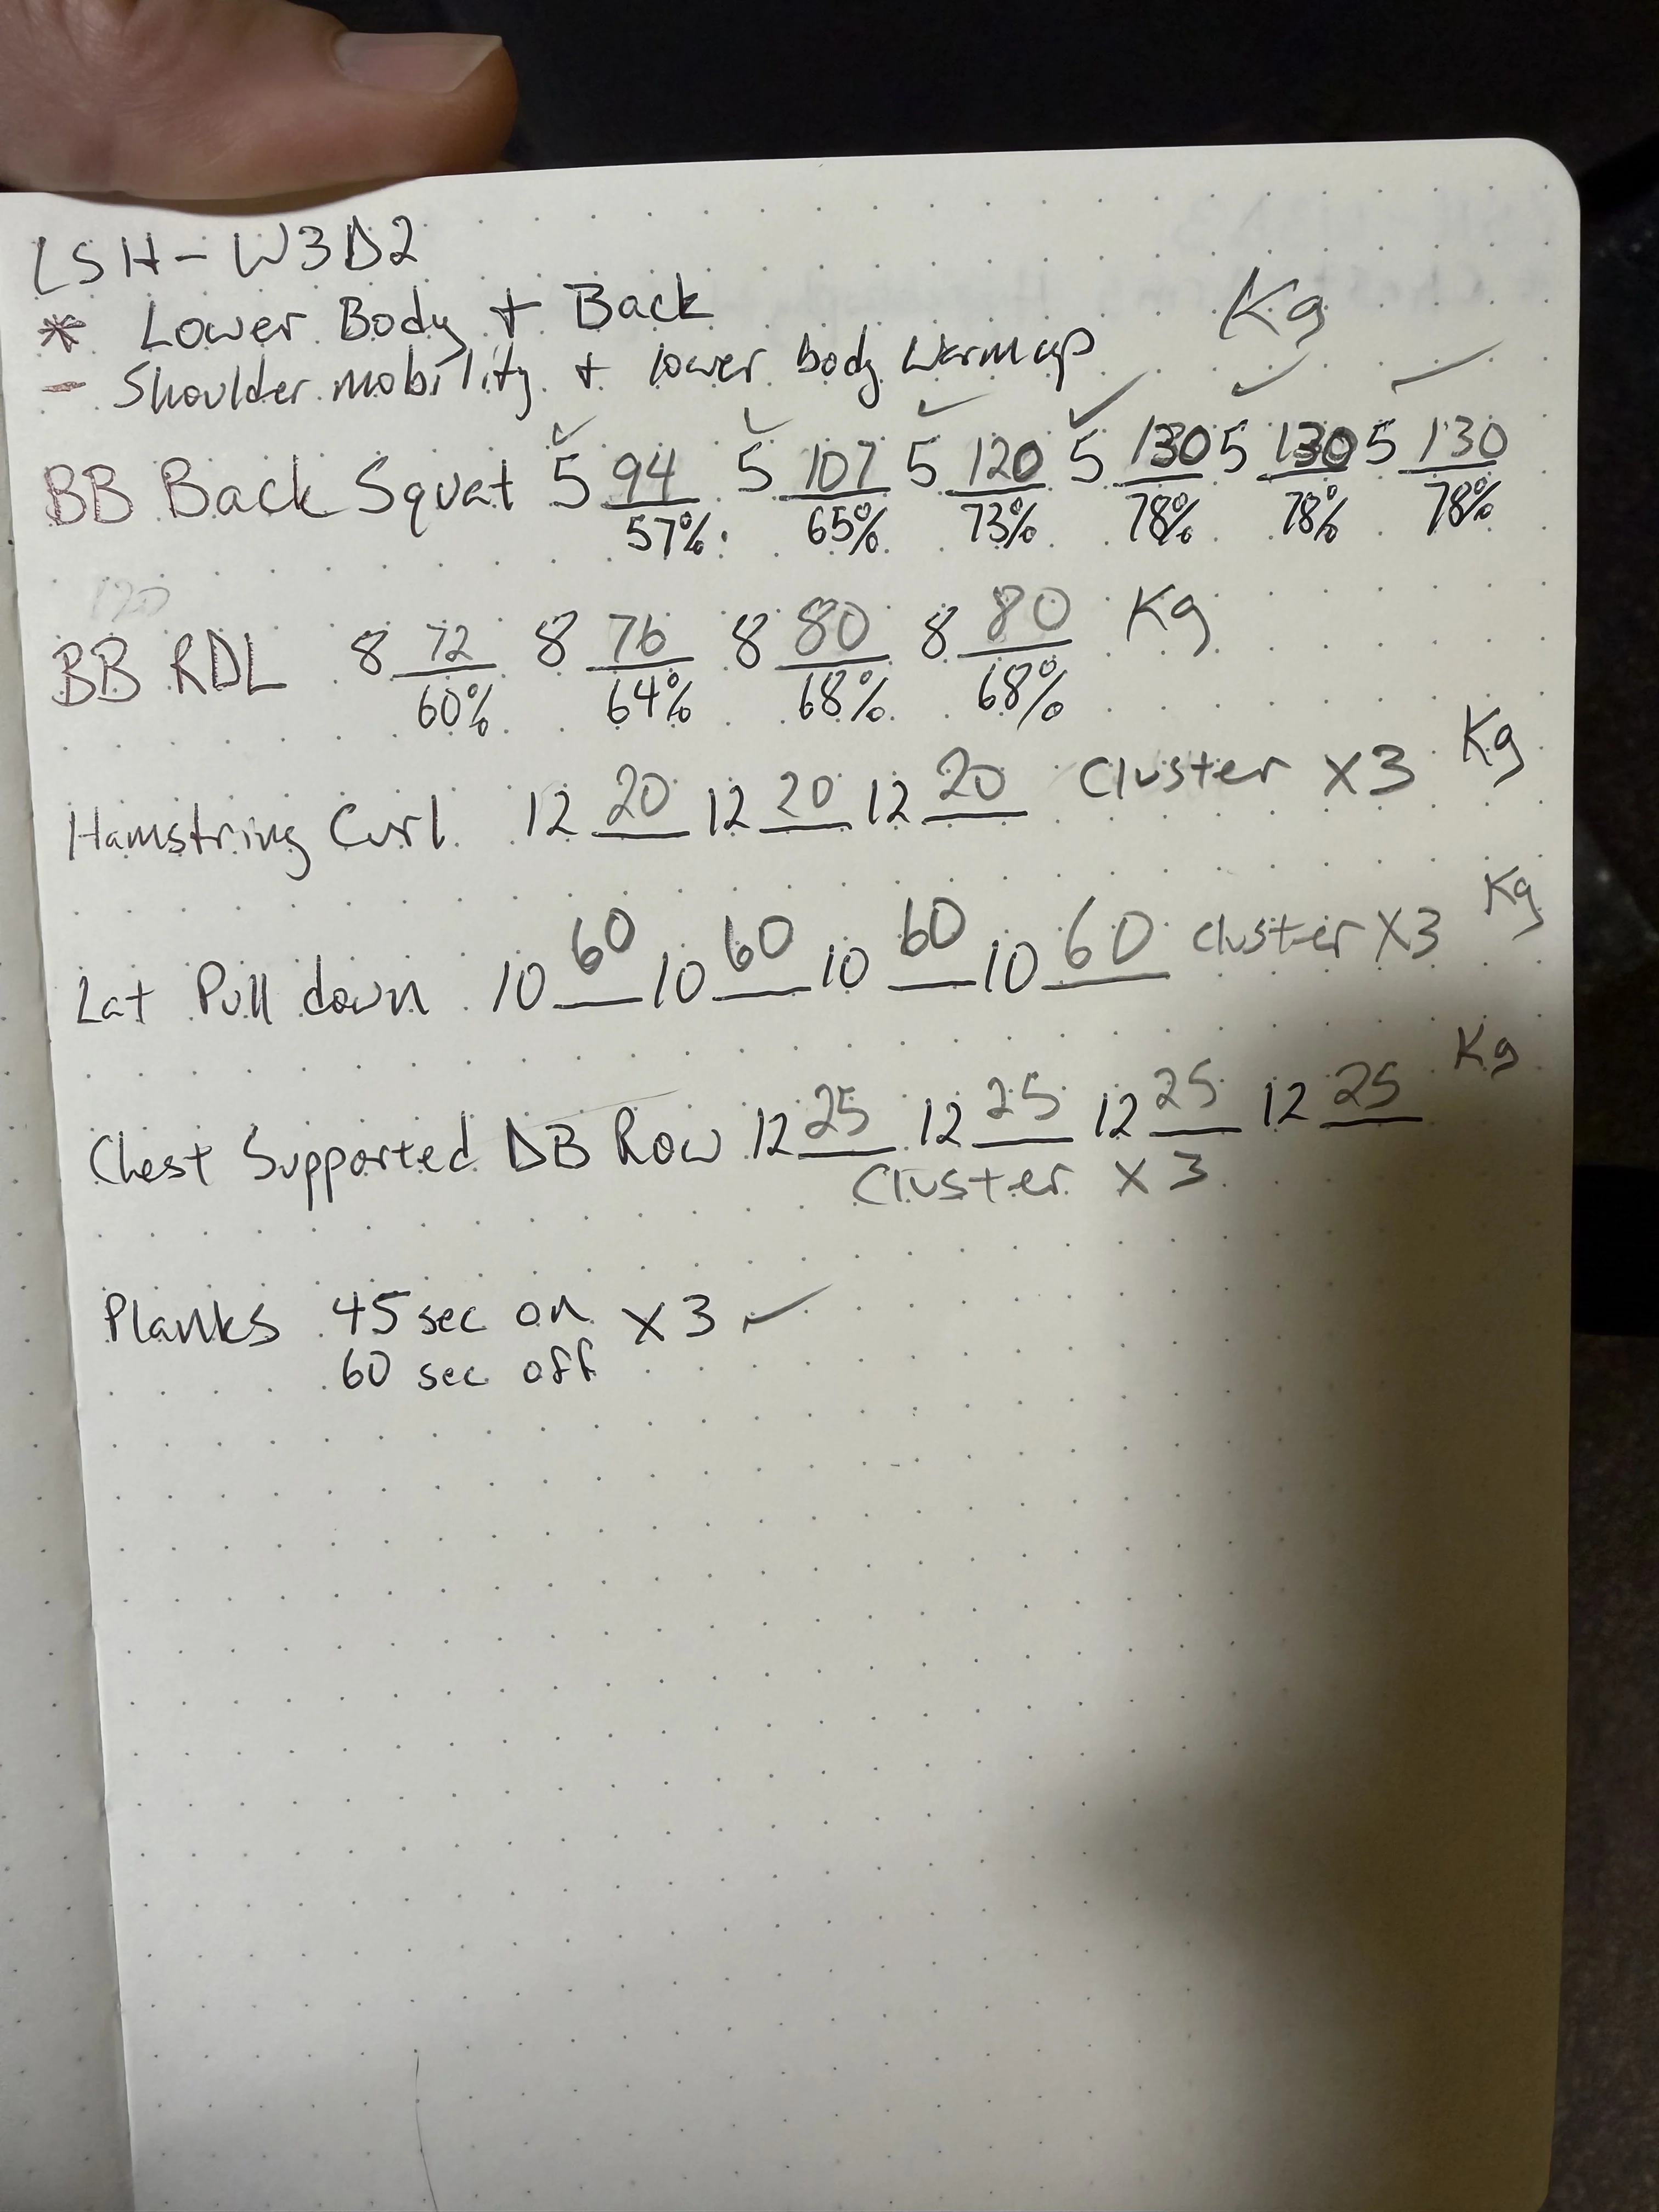 LSH - W3D2
* Lower Body + Back Kg
- Shoulder mobility + lower body warmup
BB Back Squat 5 94 5 107 5 120 5 130 5 130 5 130
57% 65% 73% 78% 78% 78%
120
BB RDL 8 72 8 76 8 80 8 80 Kg
60% 64% 68% 68%
Hamstring Curl 12 20 12 20 12 20 Cluster X3 Kg
Lat Pull down 10 60 10 60 10 60 10 60 cluster X3 Kg
Chest Supported DB Row 12 25 12 25 12 25 12 25 Kg
Cluster X3
Planks 45 sec on X3 ✓
60 sec off